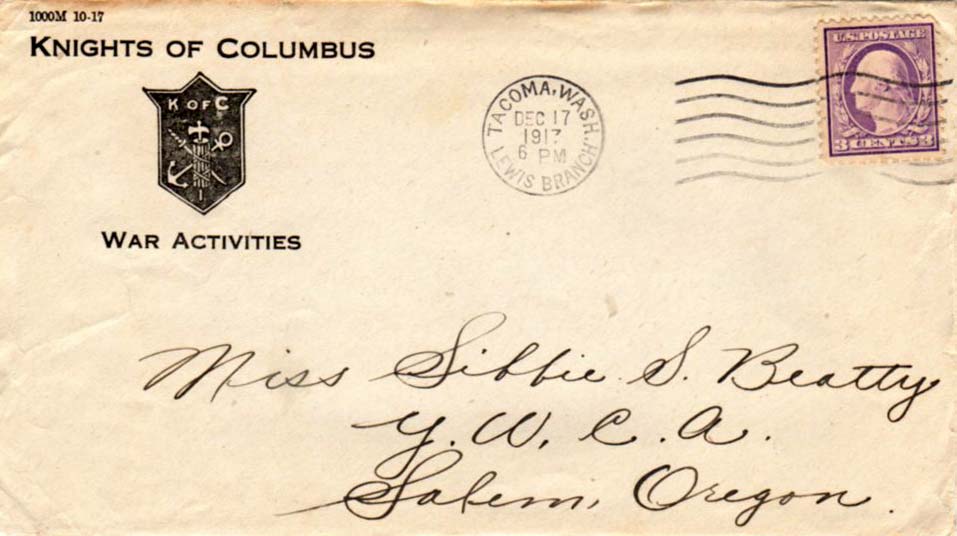 1000M 10-17
KNIGHTS OF COLUMBUS
K OF C
WAR ACTIVITIES
TACOMA, WASH.
DEC 17
1917
6 PM
LEWIS BRANCH.
U.S. POSTAGE
3 CENTS 3
Miss Sibbie S. Beatty
Y.W.C.A.
Salem, Oregon.